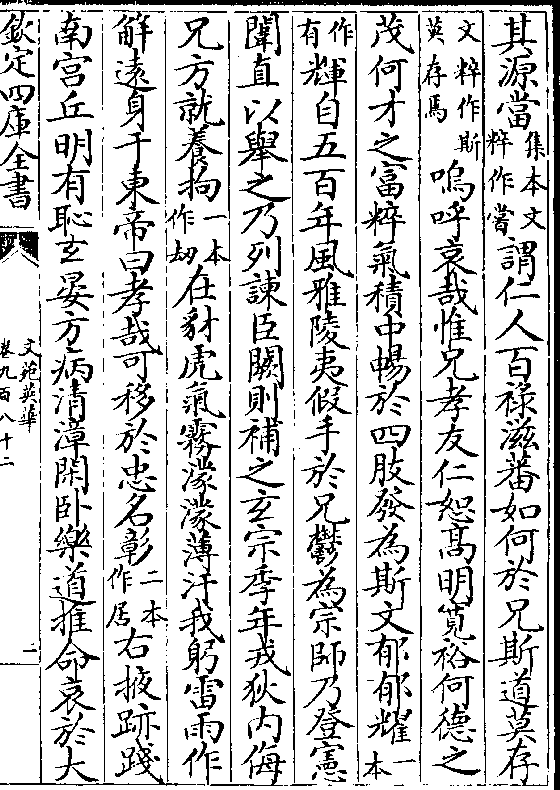 其源當集本文粹作嘗謂仁人百祿滋蕃如何於兄斯道莫存
文粹作斯莫存焉嗚呼哀哉惟兄孝友仁恕高明寬裕何德之
茂何才之富粹氣積中暢於四肢發為斯文郁郁耀一本
作有輝自五百年風雅陵夷假手於兄鬱為宗師乃登憲
闈直以舉之乃列諫臣闕則補之玄宗季年戎狄內侮
兄方就養拘一本作刼在豺虎氣霧濛濛薄汗我躬雷雨作
解遠身于東帝曰孝哉可移於忠名彰二本作居右掖跡踐
南宮丘明有恥玄晏方病清漳閑卧樂道推命哀於大
欽定四庫全書
文苑英華
卷九百八十二
二